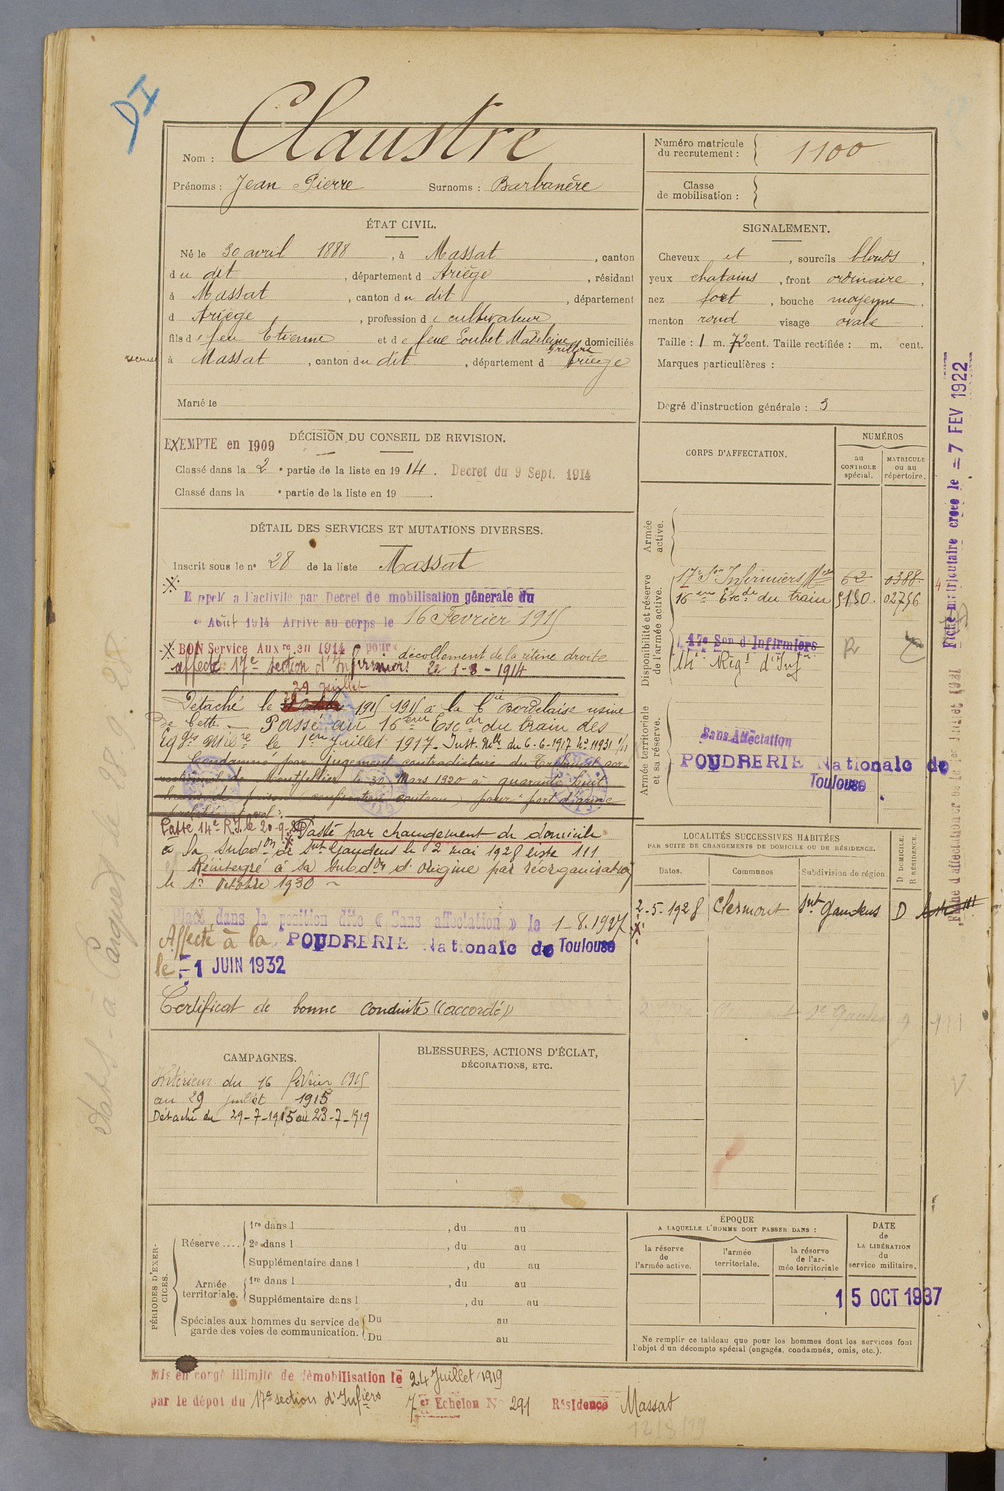 DI
Nom : Claustre
Prénoms : Jean Pierre Surnoms : Barbanère
Numéro matricule du recrutement : 1100
Classe de mobilisation :
ÉTAT CIVIL.
Né le 30 avril 1888, à Massat, canton
du dit, département d Ariège, résidant
à Massat, canton du dit, département
d Ariège, profession de cultivateur
fils de feu Etienne et de feue Loubet Madeleine domiciliés
à Massat, canton du dit, département d Ariège
Marié le
SIGNALEMENT.
Cheveux et, sourcils blonds,
yeux chatains, front ordinaire,
nez fort, bouche moyenne
menton rond visage ovale
Taille : 1 m. 72 cent. Taille rectifiée : m. cent.
Marques particulières :
Degré d'instruction générale : 3
DÉCISION DU CONSEIL DE REVISION.
EXEMPTE en 1909
Classé dans la 2e partie de la liste en 1914. Decret du 9 Sept. 1914
Classé dans la e partie de la liste en 19
DÉTAIL DES SERVICES ET MUTATIONS DIVERSES.
Inscrit sous le no 28 de la liste Massat
Rappelé a l'activité par Decret de mobilisation générale du
Août 1914 Arrive au corps le 16 Fevrier 1915
BON Service Auxre en 1914 pour décollement de la rétine droite
affecté 17e section d'Infirmiers le 1-8-1914
29 juillet
Détaché le 1915 à la Cie Bordelaise usine
de Cette. - Passé au 16ème Esc. du train des
Eqges Mires le 1er Juillet 1917. Inst. Mlle du 6-6-1917 No 11931
Condamné par Jugement contradictoire du Tribunal cor-
rectionnel de Montpellier le 30 Mars 1920 à quarante huit
Passé 14e R.I. le 20-9-20 Passé par changement de domicile
à la Subdon de Snt Gaudens le 2 mai 1928 liste 111
Réintégré à sa Subdon d'origine par réorganisation
le 1er Octobre 1930
Placé dans la position dite « Sans affectation » le 1-8.1927
Affecté à la POUDRERIE Nationale de Toulouse
le -1 JUIN 1932
Certificat de bonne conduite "accordé"
CORPS D'AFFECTATION.
NUMÉROS
au CONTROLE spécial.
MATRICULE ou au répertoire.
Armée active.
Disponibilité et réserve de l'armée active.
17e Son Infirmiers Mres 62 0388
16ème Esc. du train 5130. 02756
17e Son d'Infirmiers
14e Régt d'Inf
Armée territoriale et sa réserve.
Sans Affectation
POUDRERIE Nationale de
Toulouse
LOCALITÉS SUCCESSIVES HABITÉES
PAR SUITE DE CHANGEMENTS DE DOMICILE OU DE RÉSIDENCE.
Dates. Communes Subdivision de région. D DOMICILE. R RÉSIDENCE.
2-5-1928 Clermont Snt Gaudens D
Fiche matriculaire créée le -7 FEV 1922
CAMPAGNES.
Intérieur du 16 février 1915
au 29 juillet 1915
Détaché du 29-7-1915 au 23-7-1919
BLESSURES, ACTIONS D'ÉCLAT,
DÉCORATIONS, ETC.
PÉRIODES D'EXERCICES.
Réserve .... 1re dans l , du au
2e dans l , du au
Supplémentaire dans l , du au
Armée territoriale. 1re dans l , du au
Supplémentaire dans l , du au
Spéciales aux hommes du service de garde des voies de communication. Du au
Du au
ÉPOQUE
A LAQUELLE L'HOMME DOIT PASSER DANS :
la réserve de l'armée active.
l'armée territoriale.
la réserve de l'armée territoriale
DATE de LA LIBÉRATION du service militaire.
15 OCT 1937
Ne remplir ce tableau que pour les hommes dont les services font
l'objet d'un décompte spécial (engagés, condamnés, omis, etc.).
Mis en congé illimité de démobilisation le 24 Juillet 1919
par le dépot du 17e section d'Infiers 7e Echelon No 291 Résidence Massat
12/8/19